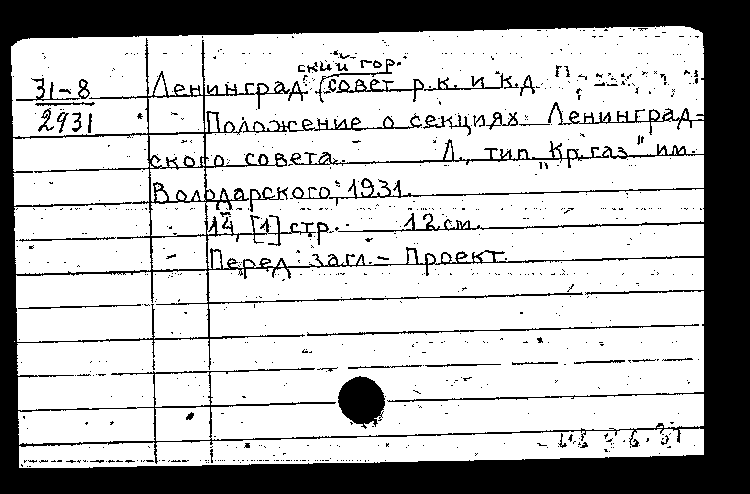 ский гор.
31-8 Ленинград (совет р.к. и к.д
2931 Положение о секциях Ленинград-
ского совета. Л., тип. „Кр. газ" им.
Володарского, 1931.
14, [1] стр. 12 см.
Перед загл.- Проект.